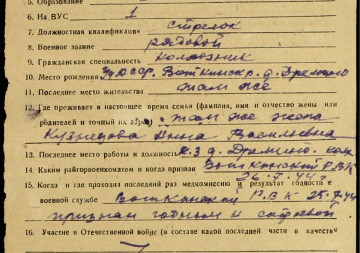 5. Образование
6. На ВУС 1
7. Должностная квалификация стрелок
8. Военное звание рядовой
9. Гражданская специальность колхозник
10. Место рождения УАССР. Воткинск р. д.
11. Последнее место жительства там же
12. Где проживает в настоящее время семья (фамилия, имя и отчество жены или
родителей и точный их адрес) там же жена
Кузнецова Анна Васильевна
13. Последнее место работы и должность к-з д.
14. Каким райгорвоенкоматом и когда призван Воткинский РВК
26.7.44г
15. Когда и где проходил последний раз медкомиссию и результат годности к
военной службе Воткинский РВК 25.7.44
признан годным к строевой
16. Участие в Отечественной войне (в составе какой последней части и в качестве